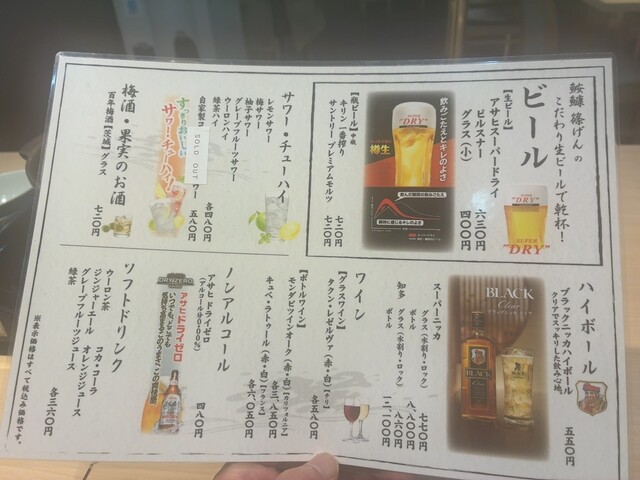 鮟鱇 篠げん の
こだわり生ビールで乾杯!
ビール
【生ビール】
アサヒスーパードライ
ピルスナー 六三〇円
グラス(小) 四〇〇円
【瓶ビール】中瓶
キリン 一番搾り 七二〇円
サントリー プレミアムモルツ 七二〇円
飲みごたえとキレのよさ
樽生
"DRY"
SUPER
"DRY"
サワー・チューハイ
レモンサワー
梅サワー
柚子サワー
グレープフルーツサワー
ウーロンハイ
緑茶ハイ
各四八〇円
自家製コ SOLD OUT ワー
五八〇円
すっきりおいしい
サワー・チューハイ!
梅酒・果実のお酒
百年梅酒【茨城】グラス
七二〇円
ハイボール
ブラックニッカハイボール
クリアでスッキリした飲み心地。
五五〇円
BLACK
Clear
BLACK
スーパーニッカ
グラス(水割り・ロック) 七七〇円
ボトル 八、八〇〇円
知多 グラス(水割り・ロック) 八六〇円
ボトル 一二、一〇〇円
ワイン
【グラスワイン】
タクン・レゼルヴァ(赤・白)【チリ】
各五八〇円
【ボトルワイン】
モンダビツインオーク(赤・白)【カリフォルニア】
各三、八五〇円
キュベ・ラトゥール(赤・白)【フランス】
各六、〇五〇円
ノンアルコール
アサヒドライゼロ
(アルコール分0.00%)
四八〇円
DRYZERO
アサヒドライゼロ
いつでも、どこでも
ソフトドリンク
ウーロン茶
ジンジャーエール
グレープフルーツジュース
緑茶
コカ・コーラ
オレンジジュース
各三六〇円
※表示価格はすべて税込み価格です。